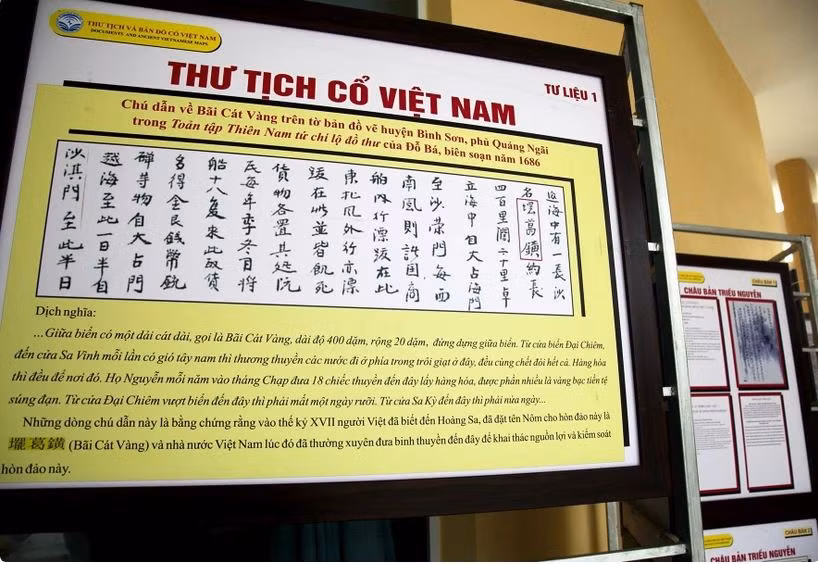 THƯ TỊCH VÀ BẢN ĐỒ CỔ VIỆT NAM
DOCUMENTS AND ANCIENT VIETNAMESE MAPS
THƯ TỊCH CỔ VIỆT NAM
TƯ LIỆU 1
Chú dẫn về Bãi Cát Vàng trên tờ bản đồ vẽ huyện Bình Sơn, phủ Quảng Ngãi
trong Toản tập Thiên Nam tứ chí lộ đồ thư của Đỗ Bá, biên soạn năm 1686
海中有一長沙
名 葛鐄約長
四百里濶二十里卓
立海中自大占海門
至沙荣門每西
南風則諸國商
舶內行漂 在此
東北風外行亦漂
在此並皆飢死
貨物各置其 阮
氏每年季冬月将
船十八隻来此 貨
多得金艮錢幣銃
等物自大占門
越海至此一日半自
沙淇門至此半日
Dịch nghĩa:
...Giữa biển có một dải cát dài, gọi là Bãi Cát Vàng, dài độ 400 dặm, rộng 20 dặm, đứng dựng giữa biển. Từ cửa biển Đại Chiêm,
đến cửa Sa Vinh mỗi lần có gió tây nam thì thương thuyền các nước đi ở phía trong trôi giạt ở đây, đều cùng chết đói hết cả. Hàng hóa
thì đều để nơi đó. Họ Nguyễn mỗi năm vào tháng Chạp đưa 18 chiếc thuyền đến đây lấy hàng hóa, được phần nhiều là vàng bạc tiền tệ
súng đạn. Từ cửa Đại Chiêm vượt biển đến đây thì phải mất một ngày rưỡi. Từ cửa Sa Kỳ đến đây thì phải nửa ngày...
Những dòng chú dẫn này là bằng chứng rằng vào thế kỷ XVII người Việt đã biết đến Hoàng Sa, đã đặt tên Nôm cho hòn đảo này là
葛鐄 (Bãi Cát Vàng) và nhà nước Việt Nam lúc đó đã thường xuyên đưa binh thuyền đến đây để khai thác nguồn lợi và kiểm soát
hòn đảo này.
CHÂU BẢN TRIỀU NGUYỄN
CHÂU BẢN TRIỀU NGUYỄN